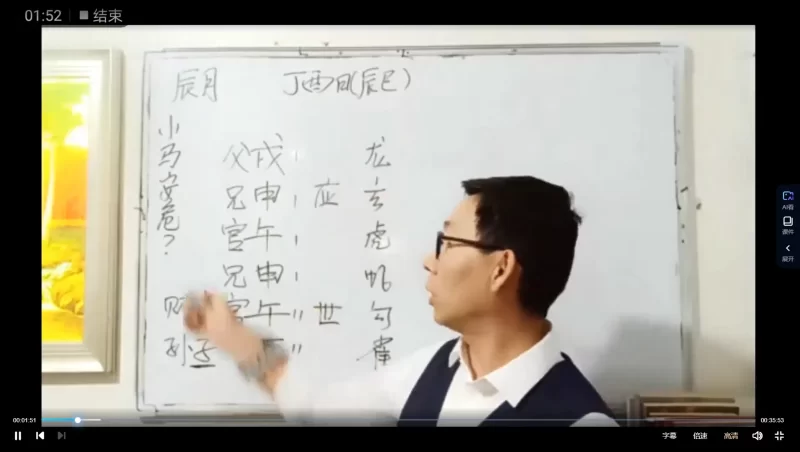 01:52 结束
辰月 丁酉日(辰巳)
小马安危?
父戌、 龙
兄申、应 玄
官午、 虎
兄申、 蛇
财 官午〃世 勾
孙子 〃 雀
AI看
课件
展开
00:01:51
00:35:53
字幕 倍速 高清